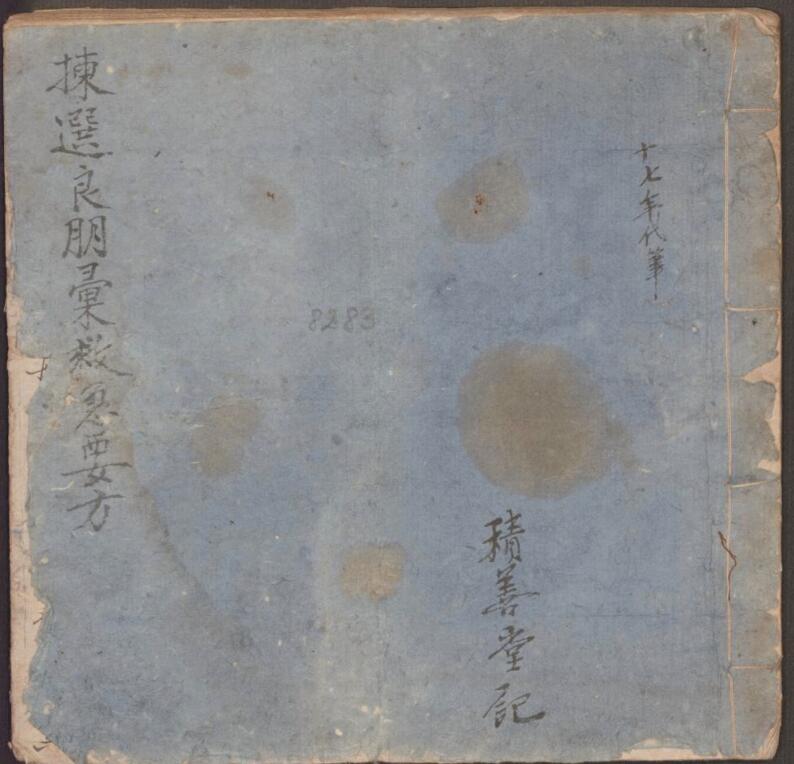 十七年代筆
積善堂記
8283
揀選良朋彙救急要方